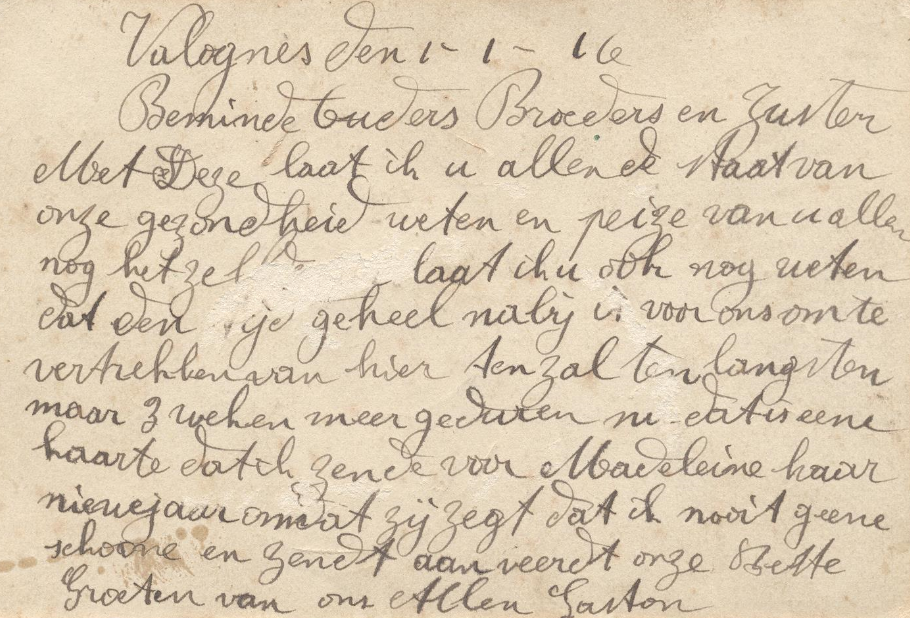 Valognes den 1 - 1 - 16
Beminde Ouders Broeders en Zuster
Met Deze laat ik u allen de staat van
onze gezondheid weten en peize van u allen
nog het zelfde laat ik u ook nog weten
dat den tijd geheel nabij is voor ons om te
vertrekken van hier ten zal ten langsten
maar 3 weken meer geduren nu dat is eene
kaarte dat ik zende voor Madeleine haar
nieuejaar omdat zij zegt dat ik nooit geene
schoone en zendt aanveerdt onze Beste
Groeten van ons Allen Gaston